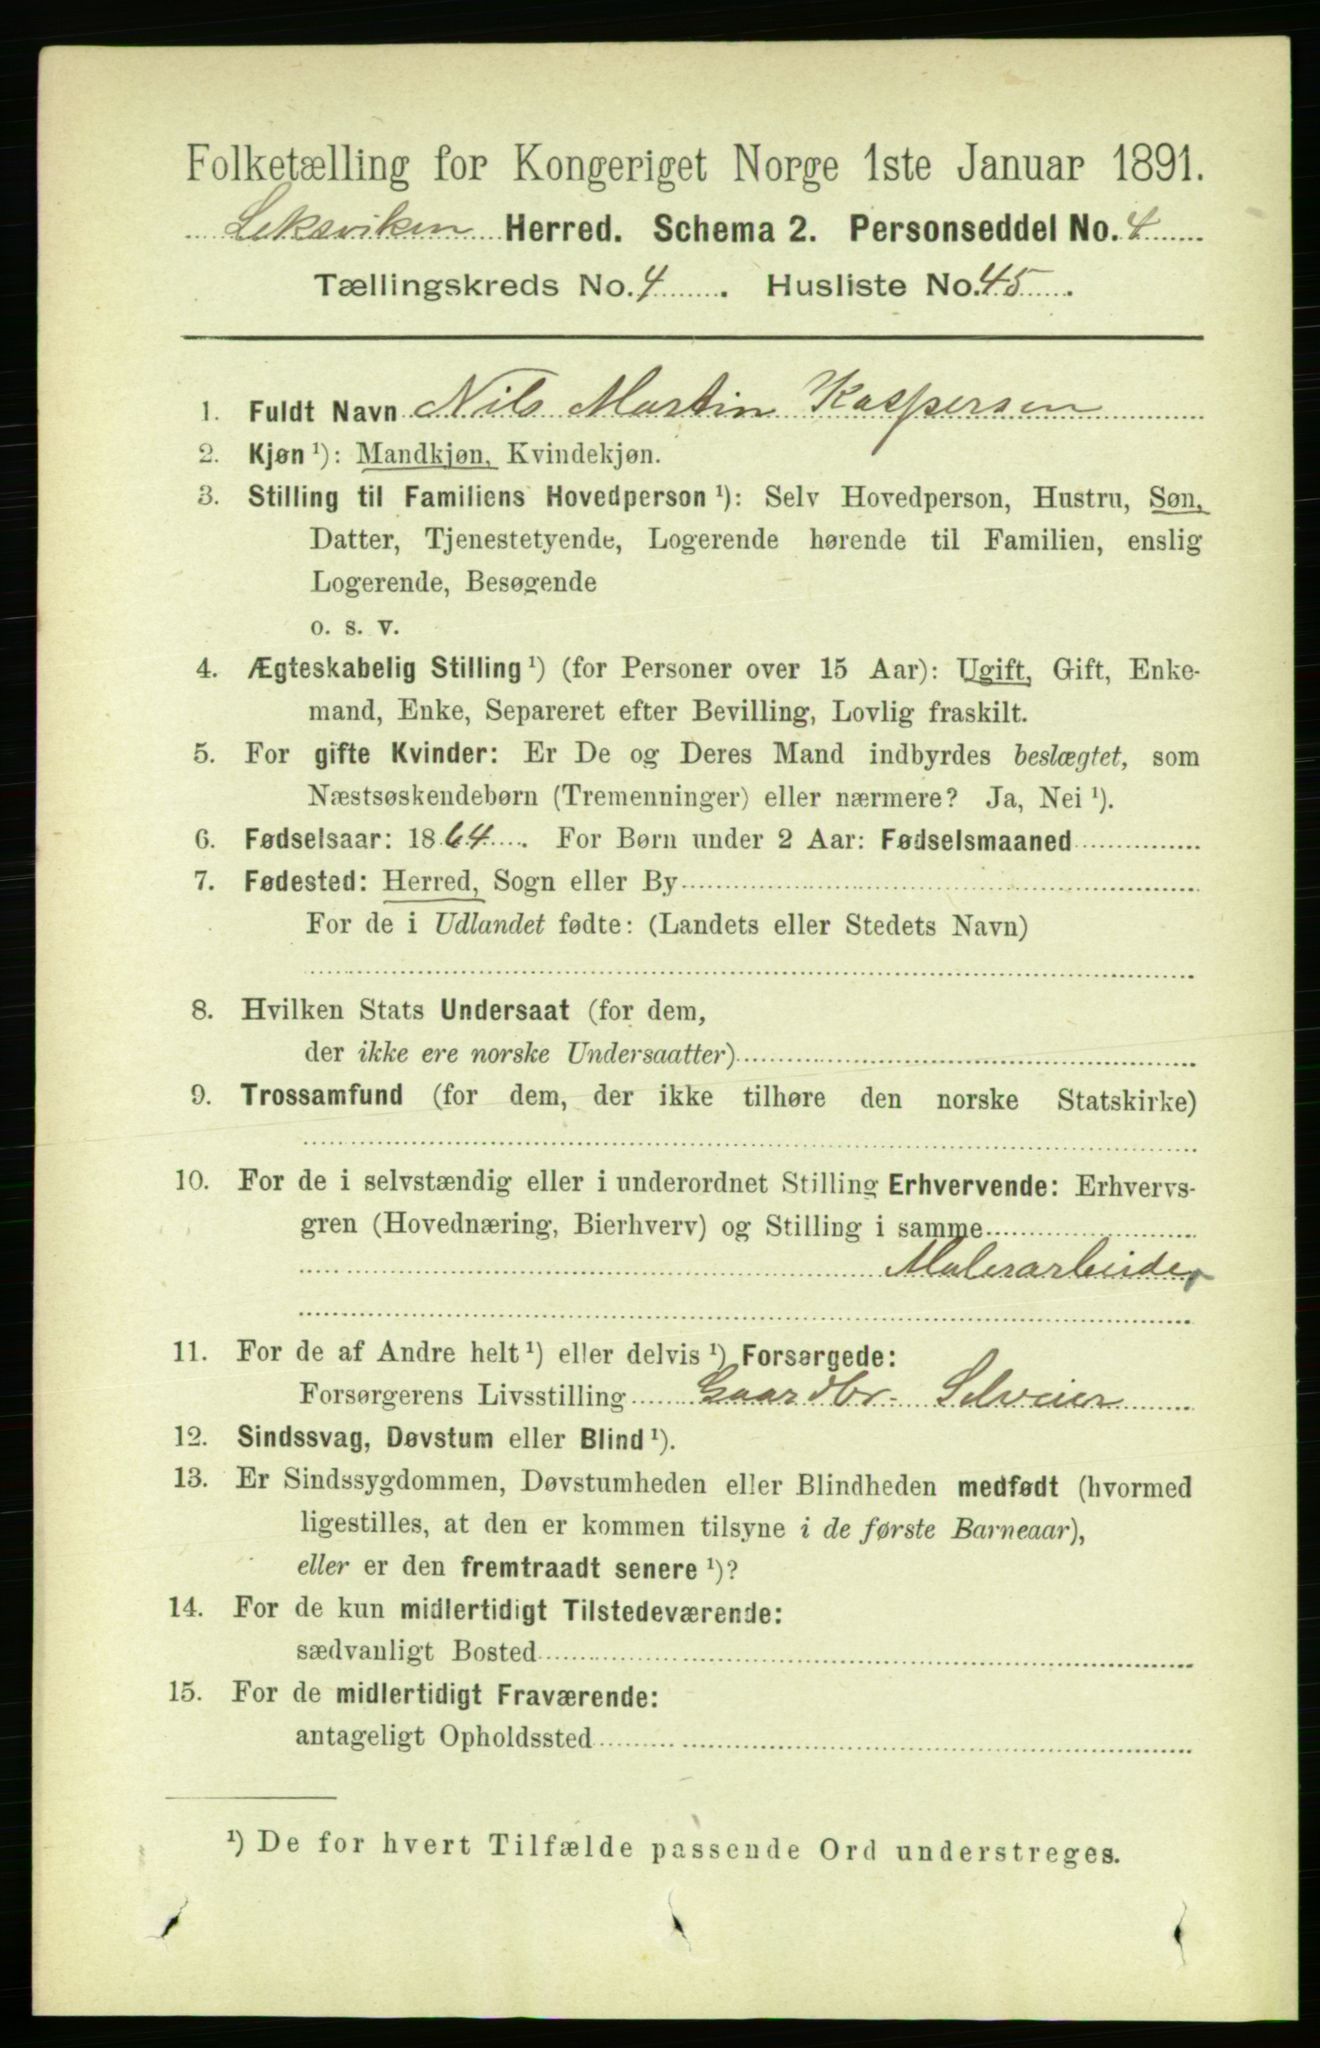 Folketælling for Kongeriget Norge 1ste Januar 1891.
Leksviken Herred. Schema 2. Personseddel No. 4
Tællingskreds No. 4. Husliste No. 45.
1. Fuldt Navn Nils Martin Kaspersen
2. Kjøn ¹): Mandkjøn, Kvindekjøn.
3. Stilling til Familiens Hovedperson ¹): Selv Hovedperson, Hustru, Søn,
Datter, Tjenestetyende, Logerende hørende til Familien, enslig
Logerende, Besøgende
o. s. v.
4. Ægteskabelig Stilling ¹) (for Personer over 15 Aar): Ugift, Gift, Enke-
mand, Enke, Separeret efter Bevilling, Lovlig fraskilt.
5. For gifte Kvinder: Er De og Deres Mand indbyrdes beslægtet, som
Næstsøskendebørn (Tremenninger) eller nærmere? Ja, Nei ¹).
6. Fødselsaar: 1864. For Børn under 2 Aar: Fødselsmaaned
7. Fødested: Herred, Sogn eller By
For de i Udlandet fødte: (Landets eller Stedets Navn)
8. Hvilken Stats Undersaat (for dem,
der ikke ere norske Undersaatter)
9. Trossamfund (for dem, der ikke tilhøre den norske Statskirke)
10. For de i selvstændig eller i underordnet Stilling Erhvervende: Erhvervs-
gren (Hovednæring, Bierhverv) og Stilling i samme
Malerarbeider
11. For de af Andre helt ¹) eller delvis ¹) Forsørgede:
Forsørgerens Livsstilling Gaardbr. Selveier
12. Sindssvag, Døvstum eller Blind ¹).
13. Er Sindssygdommen, Døvstumheden eller Blindheden medfødt (hvormed
ligestilles, at den er kommen tilsyne i de første Barneaar),
eller er den fremtraadt senere ¹)?
14. For de kun midlertidigt Tilstedeværende:
sædvanligt Bosted
15. For de midlertidigt Fraværende:
antageligt Opholdssted
¹) De for hvert Tilfælde passende Ord understreges.